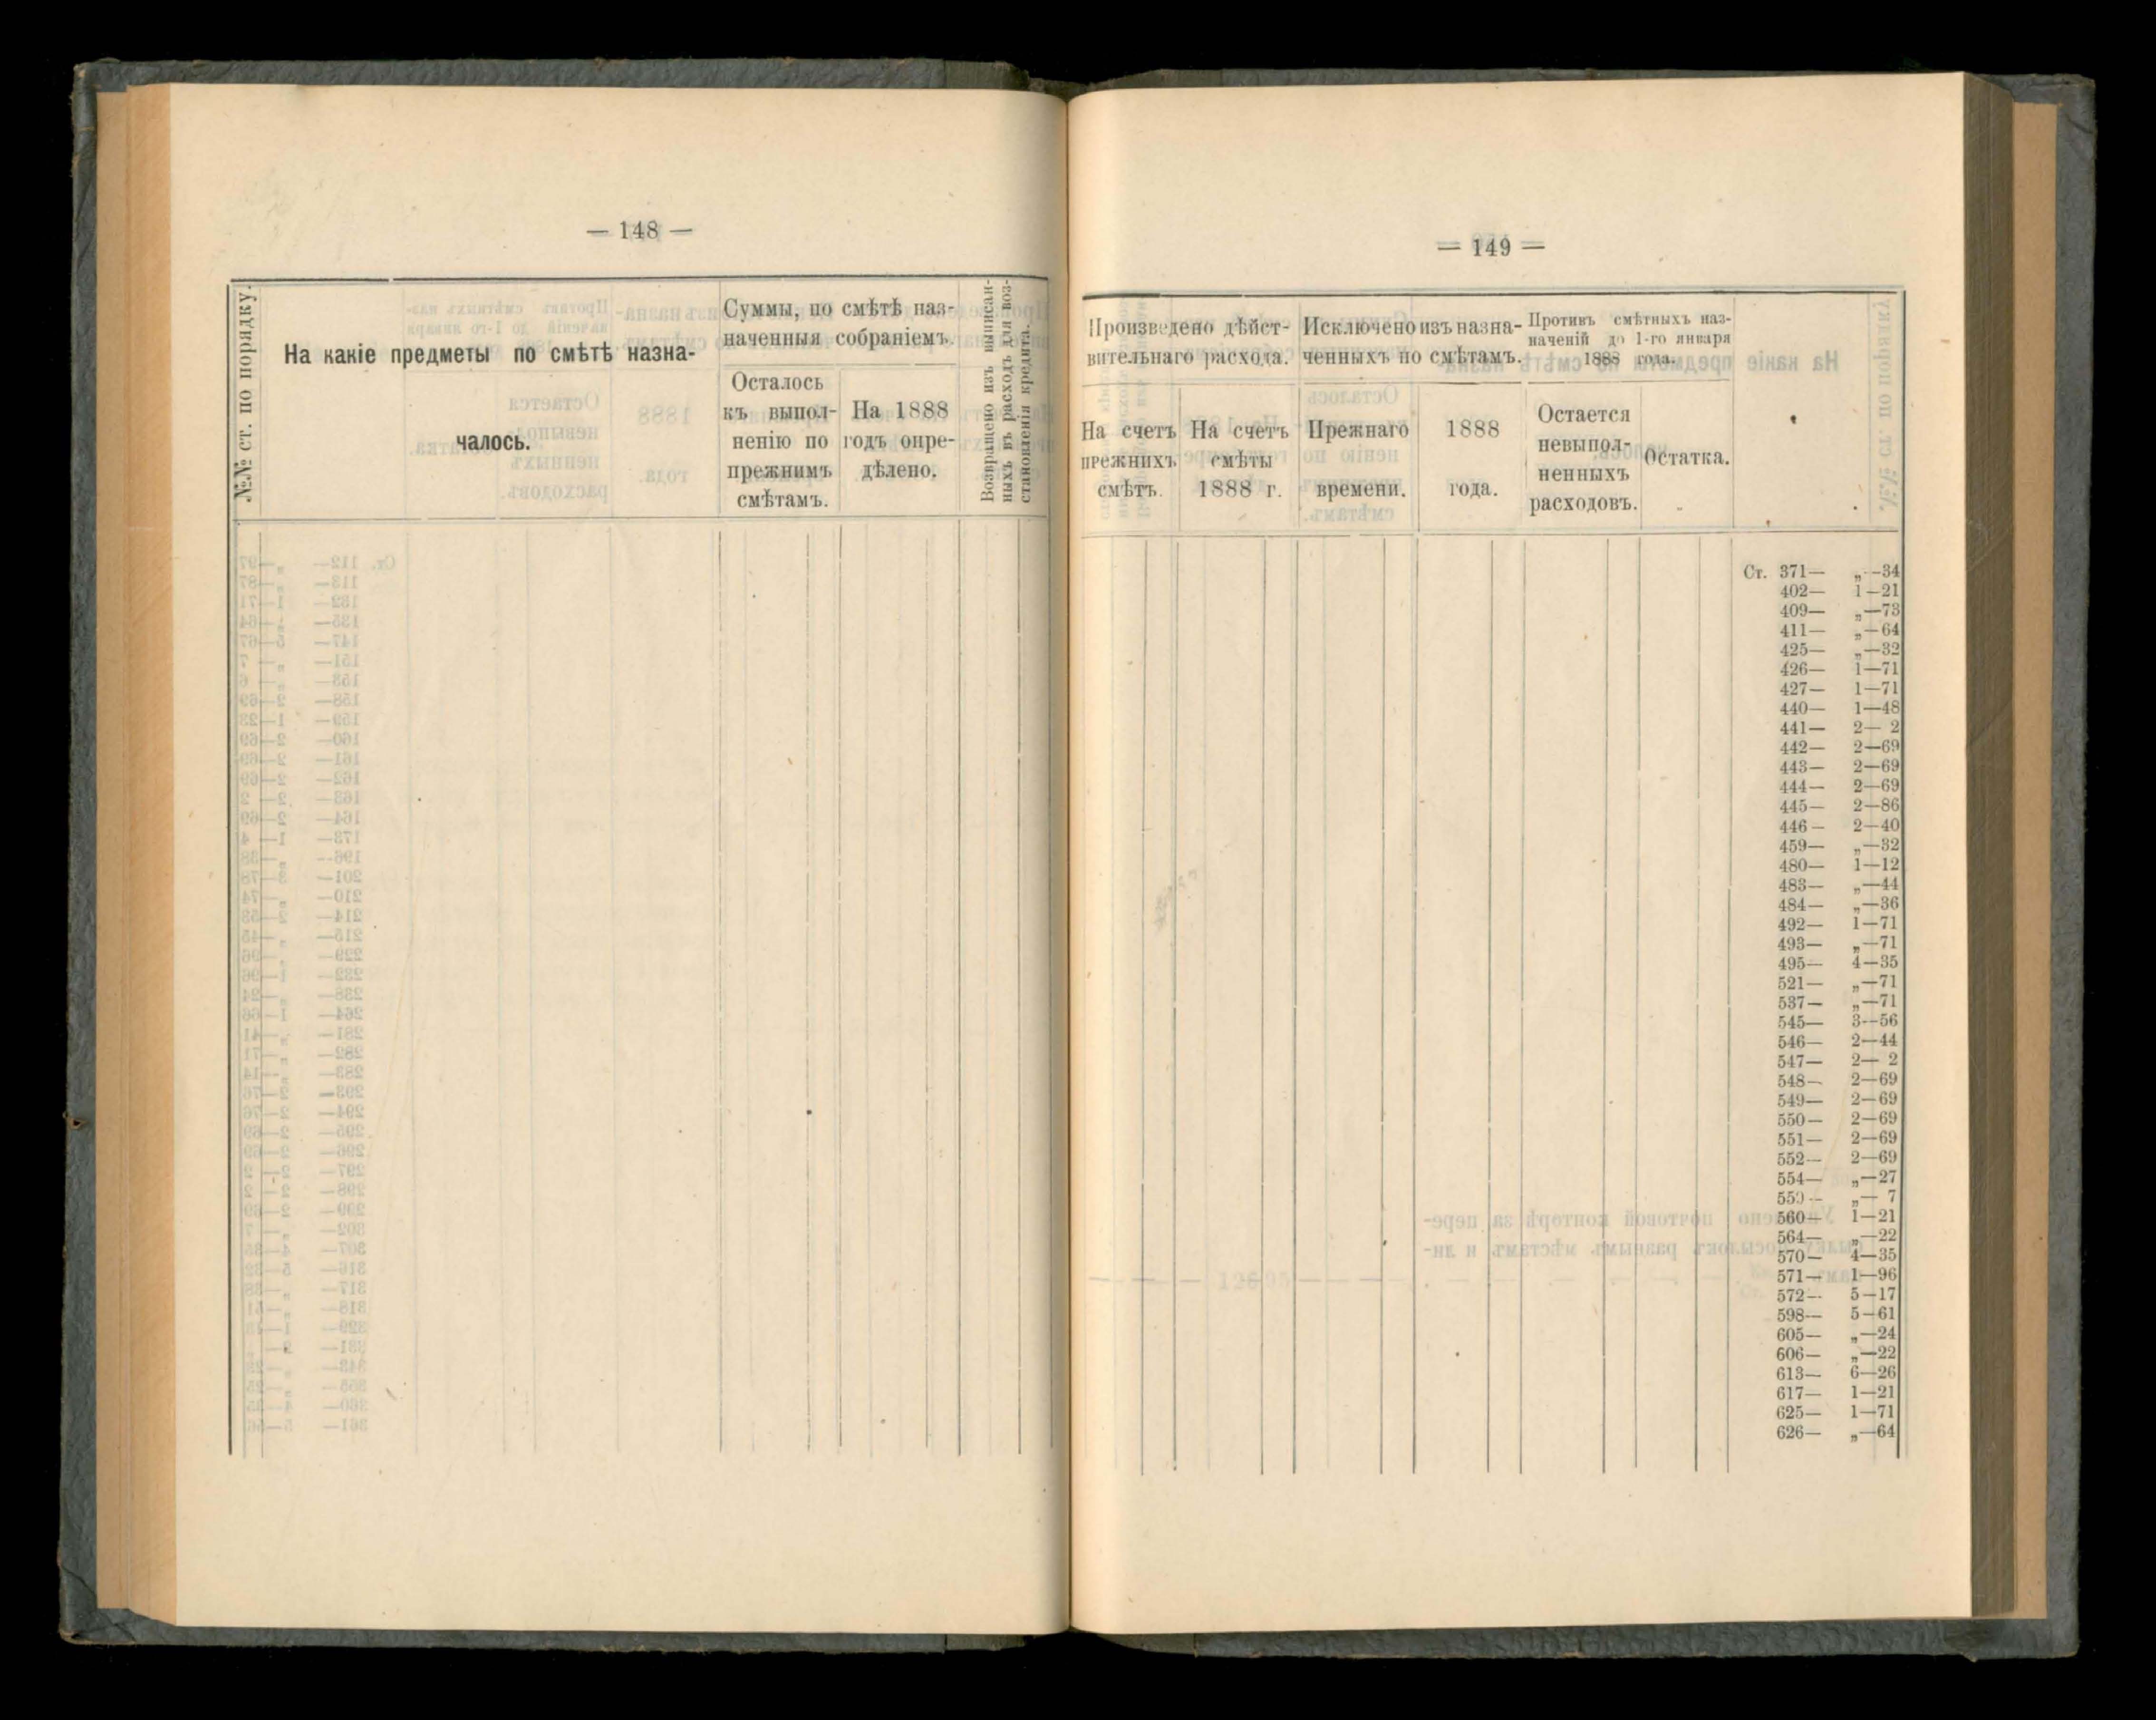 — 148 —
№№ ст. по порядку.
На какіе предметы по смѣтѣ назна-
чалось.
Суммы, по смѣтѣ наз-
наченныя собраніемъ.
Осталось
къ выпол-
ненію по
прежнимъ
смѣтамъ.
На 1888
годъ опре-
дѣлено.
Возвращено изъ выписан-
ныхъ въ расходъ для воз-
становленія кредита.
— 149 —
Произведено дѣйст-
вительнаго расхода.
На счетъ
прежнихъ
смѣтъ.
На счетъ
смѣты
1888 г.
Исключено изъ назна-
ченныхъ по смѣтамъ.
Прежнаго
времени.
1888
года.
Противъ смѣтныхъ наз-
наченій до 1-го января
1888 года.
Остается
невыпол-
ненныхъ
расходовъ.
Остатка.
Ст. 371— „—34
402— 1—21
409— „—73
411— „—64
425— „—32
426— 1—71
427— 1—71
440— 1—48
441— 2— 2
442— 2—69
443— 2—69
444— 2—69
445— 2—86
446— 2—40
459— „—32
480— 1—12
483— „—44
484— „—36
492— 1—71
493— „—71
495— 4—35
521— „—71
537— „—71
545— 3—56
546— 2—44
547— 2— 2
548— 2—69
549— 2—69
550— 2—69
551— 2—69
552— 2—69
554— „—27
„— 7
560— 1—21
564— „—22
570— 4—35
571— 1—96
572— 5—17
598— 5—61
605— „—24
606— „—22
613— 6—26
617— 1—21
625— 1—71
626— „—64